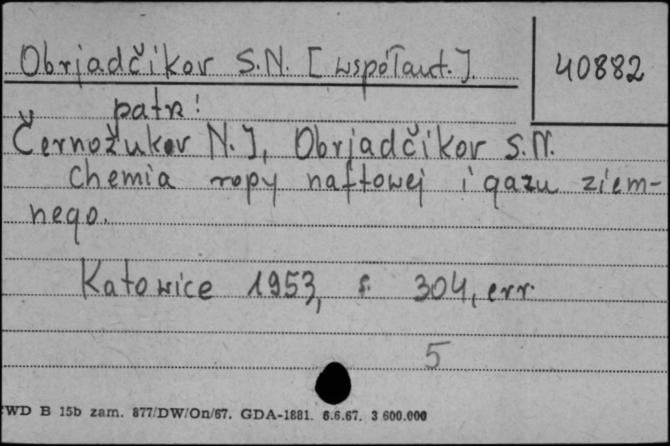 Obrjadčikov S.N. [współaut.]
40882
patrz:
Černožukov N.I., Obrjadčikov S.N.
Chemia ropy naftowej i gazu ziem-
nego.
Katowice 1953, s. 304, err.
5
WD B 15b zam. 877/DW/On/67. GDA-1881. 6.6.67. 3 600.000